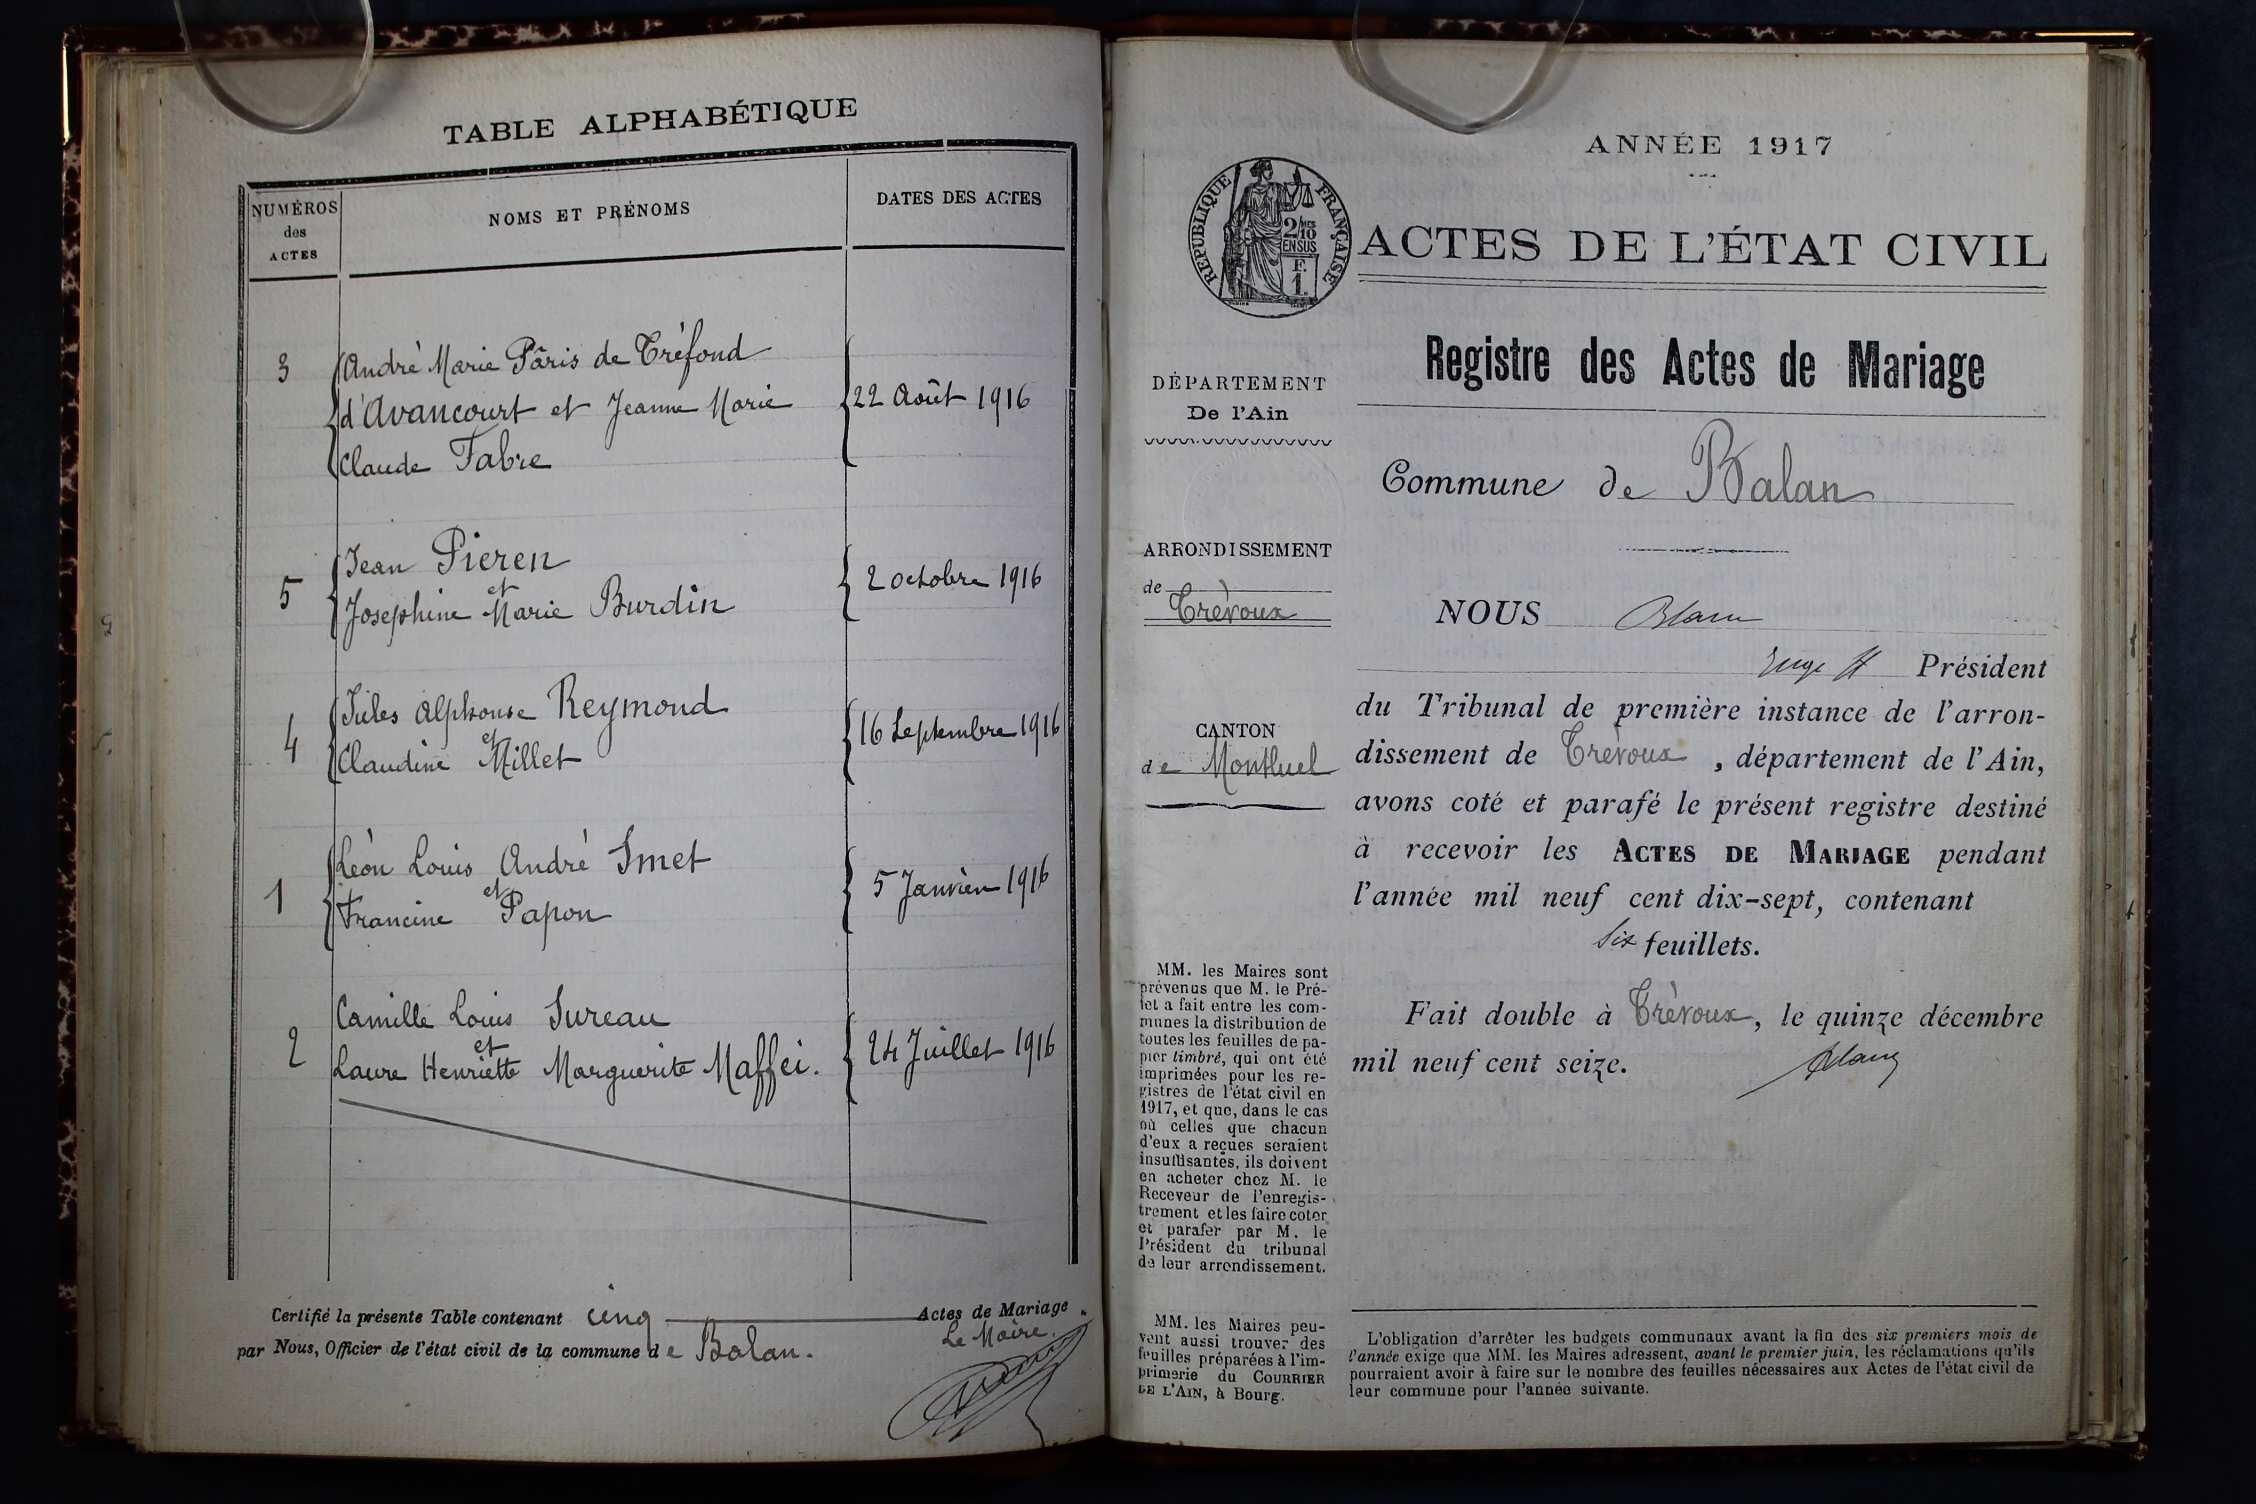 TABLE ALPHABÉTIQUE
NUMÉROS
des
ACTES
NOMS ET PRÉNOMS
DATES DES ACTES
3
André Marie Pâris de Tréfond
d'Avancourt et Jeanne Marie
Claude Fabre
22 Août 1916
5
Jean Pieren
et
Josephine Marie Burdin
2 octobre 1916
4
Jules Alphonse Reymond
et
Claudine Millet
16 Septembre 1916
1
Léon Louis André Smet
et
Francine Papon
5 Janvier 1916
2
Camille Louis Sureau
et
Laure Henriette Marguerite Maffei.
24 Juillet 1916
Certifié la présente Table contenant cinq Actes de Mariage
par Nous, Officier de l'état civil de la commune de Balan.
Le Maire.
ANNÉE 1917
RÉPUBLIQUE FRANÇAISE
2/10
EN SUS
F.
1.
ACTES DE L'ÉTAT CIVIL
Registre des Actes de Mariage
DÉPARTEMENT
De l'Ain
Commune de Balan
ARRONDISSEMENT
de
Trévoux
CANTON
de Montluel
NOUS
Juge ff Président
du Tribunal de première instance de l'arron-
dissement de Trévoux, département de l'Ain,
avons coté et parafé le présent registre destiné
à recevoir les ACTES DE MARIAGE pendant
l'année mil neuf cent dix-sept, contenant
Six feuillets.
Fait double à Trévoux, le quinze décembre
mil neuf cent seize.
MM. les Maires sont
prévenus que M. le Pré-
fet a fait entre les com-
munes la distribution de
toutes les feuilles de pa-
pier timbré, qui ont été
imprimées pour les re-
gistres de l'état civil en
1917, et que, dans le cas
où celles que chacun
d'eux a reçues seraient
insuffisantes, ils doivent
en acheter chez M. le
Receveur de l'enregis-
trement et les faire coter
et parafer par M. le
Président du tribunal
de leur arrondissement.
MM. les Maires peu-
vent aussi trouver des
feuilles préparées à l'im-
primerie du COURRIER
DE L'AIN, à Bourg.
L'obligation d'arrêter les budgets communaux avant la fin des six premiers mois de
l'année exige que MM. les Maires adressent, avant le premier juin, les réclamations qu'ils
pourraient avoir à faire sur le nombre des feuilles nécessaires aux Actes de l'état civil de
leur commune pour l'année suivante.